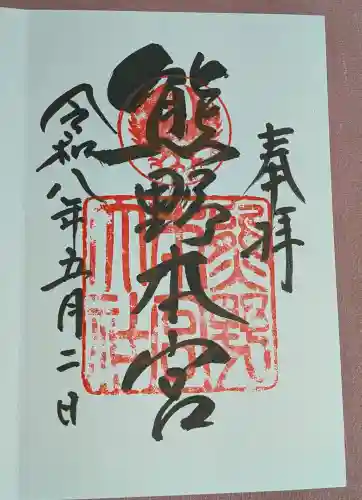 奉拝
熊野本宮
令和八年五月二日
熊野本宮大社